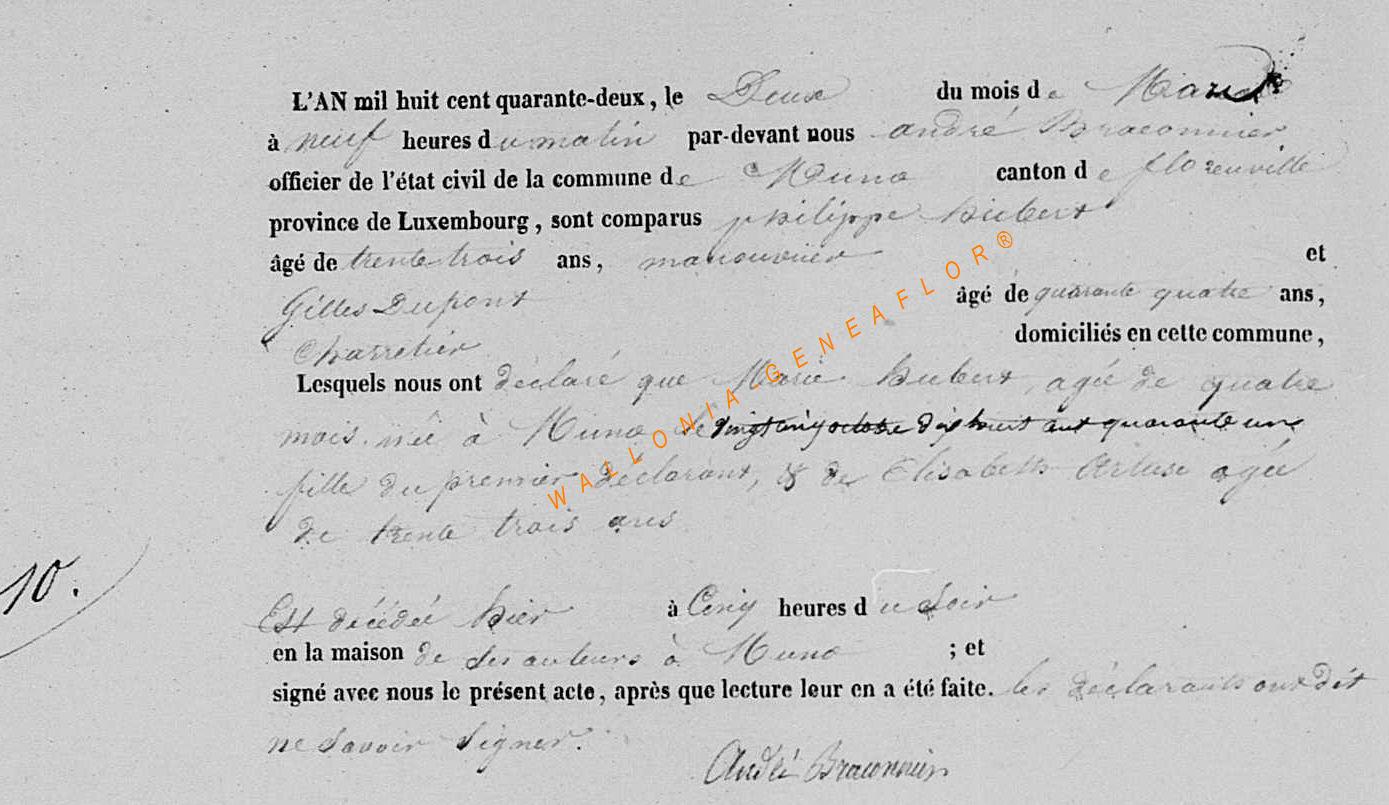 L'AN mil huit cent quarante-deux, le Deux du mois de Mars
à neuf heures du matin par-devant nous andré Braconnier
officier de l'état civil de la commune de Muno canton de florenville
province de Luxembourg, sont comparus philippe hubert
âgé de trente-trois ans, manouvrier et
Gilles Dupont âgé de quarante quatre ans,
charretier domiciliés en cette commune,
Lesquels nous ont déclaré que Marie hubert, agée de quatre
mois. née à Muno le vingt cinq octobre dix huit cent quarante un
fille du premier déclarant, & de Elisabeth agée
de trente trois ans
10.
Est décédée hier à Cinq heures du Soir
en la maison de ses auteurs à Muno ; et
signé avec nous le présent acte, après que lecture leur en a été faite. les déclarants ont dit
ne savoir signer.
André Braconnier
WALLONIA GENEAFLOR®